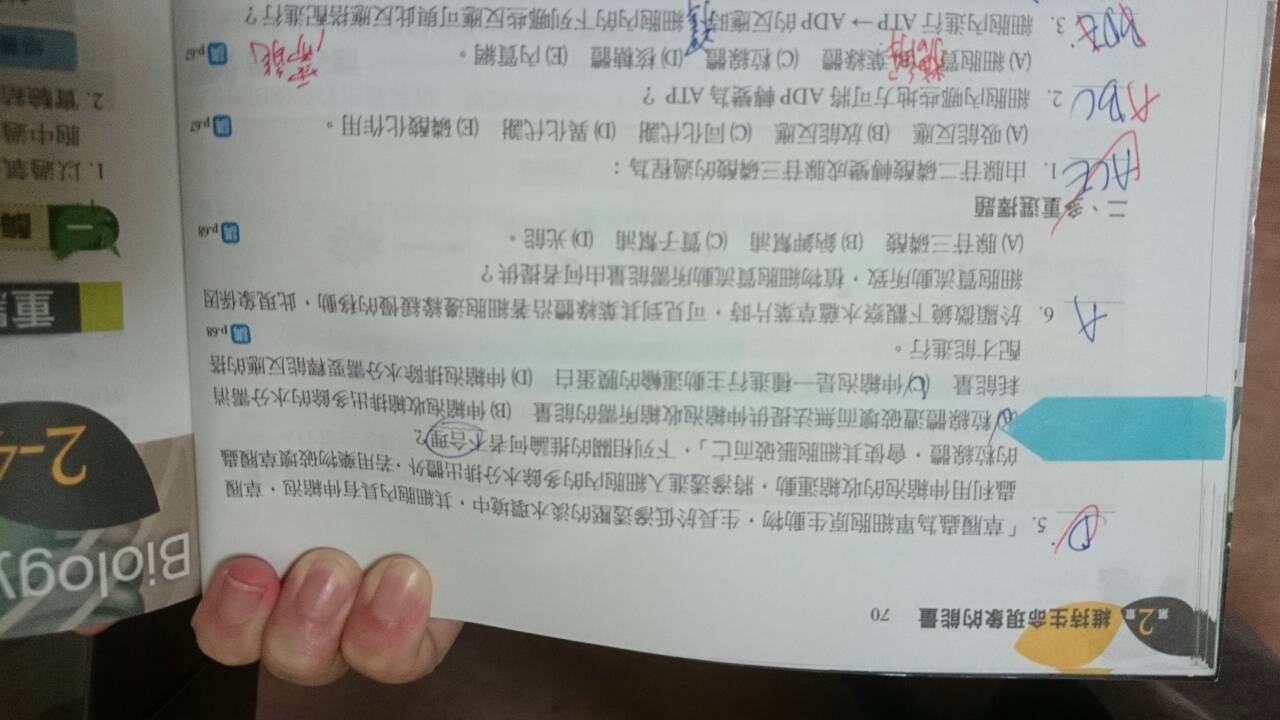 第2章 維持生命現象的能量 70
D 5. 「草履蟲為單細胞原生動物，生長於低滲透壓的淡水環境中，其細胞內具有伸縮泡，草履
蟲利用伸縮泡的收縮運動，將滲透進入細胞內的多餘水分排出體外，若用藥物破壞草履蟲
的粒線體，會使其細胞脹破而亡」，下列相關的推論何者不合理？
(A) 粒線體遭破壞而無法提供伸縮泡收縮所需的能量 (B) 伸縮泡收縮排出多餘的水分需消
耗能量 (C) 伸縮泡是一種進行主動運輸的膜蛋白 (D) 伸縮泡排除水分需要釋能反應的搭
配才能進行。 講 p.68
A 6. 於顯微鏡下觀察水蘊草葉片時，可見到其葉綠體沿著細胞邊緣緩慢的移動，此現象係因
細胞質流動所致，植物細胞質流動所需能量由何者提供？
(A) 腺苷三磷酸 (B) 鈉鉀幫浦 (C) 質子幫浦 (D) 光能。 講 p.68
二、多重選擇題
ACE 1. 由腺苷二磷酸轉變成腺苷三磷酸的過程為：
(A) 吸能反應 (B) 放能反應 (C) 同化代謝 (D) 異化代謝 (E) 磷酸化作用。 講 p.67
ABC 2. 細胞內哪些地方可將 ADP 轉變為 ATP？
(A) 細胞質 葉綠體 (C) 粒線體 (D) 核糖體 (E) 內質網。 講 p.67
3. 細胞內進行 ATP → ADP 的反應時，細胞內的下列哪些反應可與此反應搭配進行？
Biology
2-4
重
一 酶
1. 以過氧
胞中過
2. 實驗結